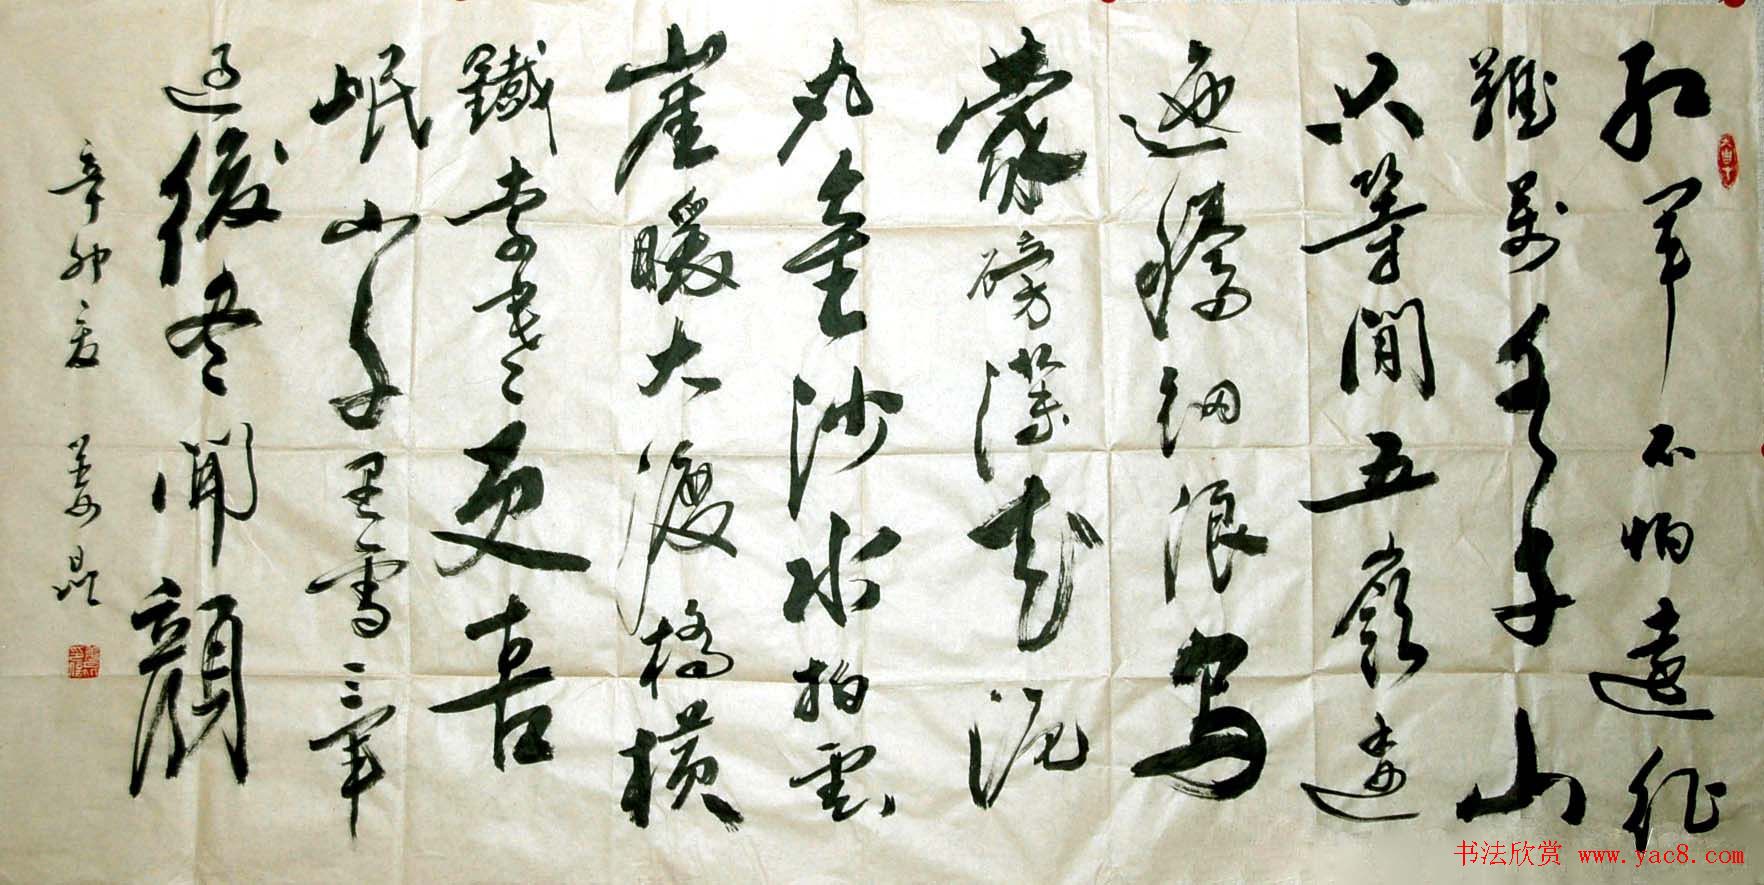 紅軍不怕遠征
難萬水千山
只等閒五嶺逶
迤騰細浪烏
蒙磅礴走泥
丸金沙水拍雲
崖暖大渡橋橫
鐵索寒更喜
岷山千里雪三軍
過後盡開顏
辛卯夏 姜昆
书法欣赏 www.yac8.com